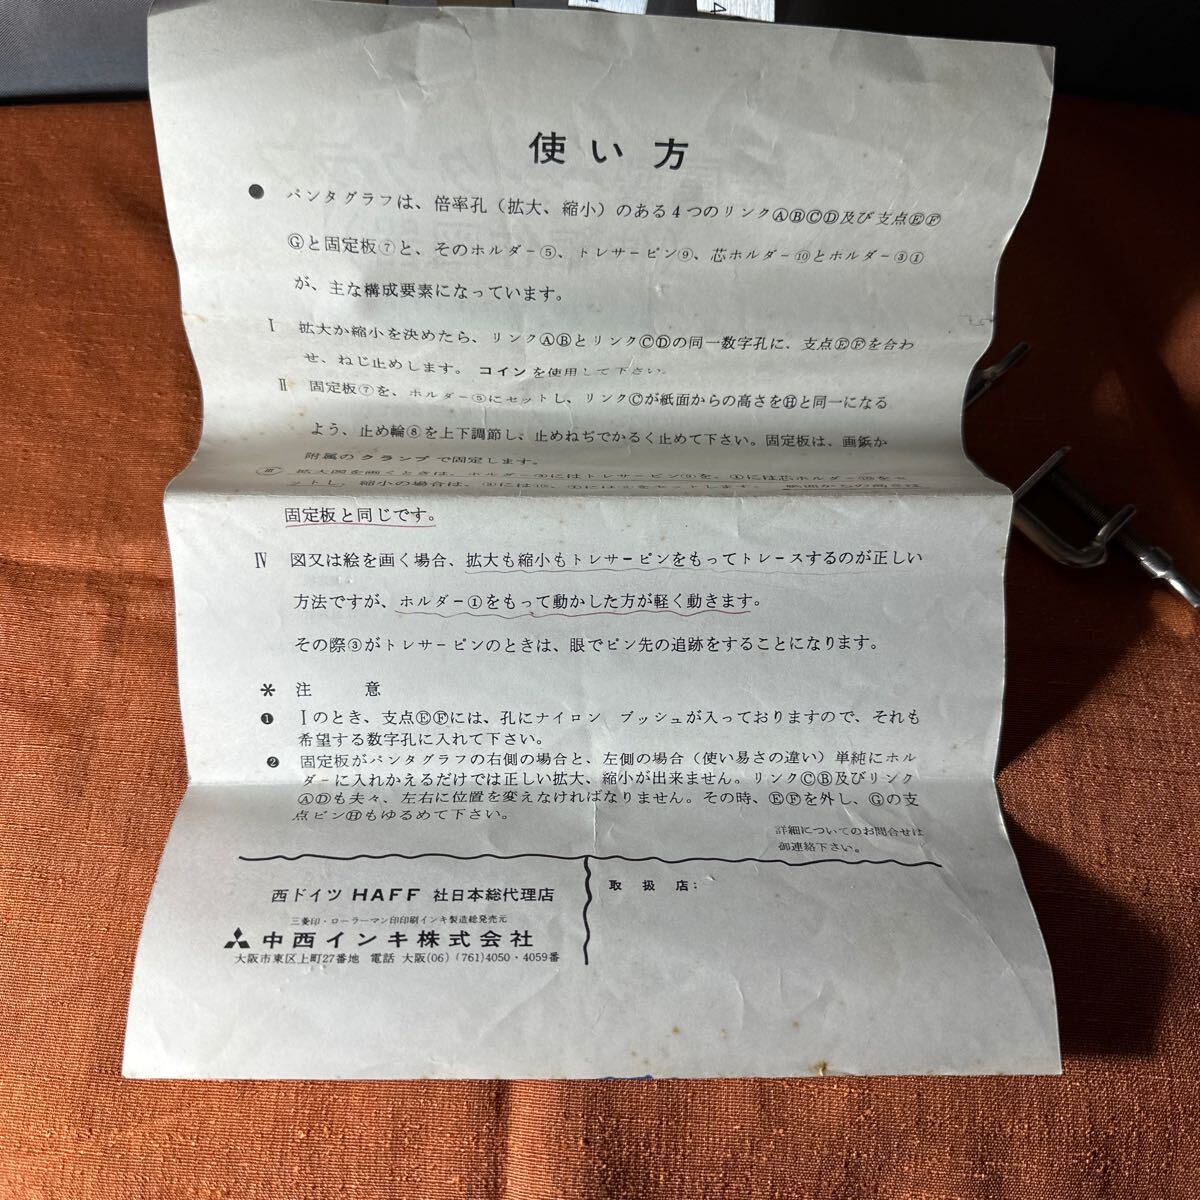 使い方
● パンタグラフは、倍率孔（拡大、縮小）のある4つのリンクⒶⒷⒸⒹ及び支点ⒺⒻ
Ⓖと固定板⑦と、そのホルダー⑤、トレサーピン⑨、芯ホルダー⑩とホルダー③①
が、主な構成要素になっています。
Ⅰ 拡大か縮小を決めたら、リンクⒶⒷとリンクⒸⒹの同一数字孔に、支点ⒺⒻを合わ
せ、ねじ止めします。コインを使用して下さい。
Ⅱ 固定板⑦を、ホルダー⑤にセットし、リンクⒸが紙面からの高さをⒽと同一になる
よう、止め輪⑧を上下調節し、止めねぢでかるく止めて下さい。固定板は、画鋲か
附属のクランプで固定します。
Ⅲ 拡大図を画くときは、ホルダー③にはトレサーピン⑨を、①には芯ホルダー⑩をセ
ットし、縮小の場合は、③には⑩、①には⑨をセットします。
固定板と同じです。
Ⅳ 図又は絵を画く場合、拡大も縮小もトレサーピンをもってトレースするのが正しい
方法ですが、ホルダー①をもって動かした方が軽く動きます。
その際③がトレサーピンのときは、眼でピン先の追跡をすることになります。
＊ 注意
❶ Ⅰのとき、支点ⒺⒻには、孔にナイロン ブッシュが入っておりますので、それも
希望する数字孔に入れて下さい。
❷ 固定板がパンタグラフの右側の場合と、左側の場合（使い易さの違い）単純にホル
ダーに入れかえるだけでは正しい拡大、縮小が出来ません。リンクⒸⒷ及びリンク
ⒶⒹも夫々、左右に位置を変えなければなりません。その時、ⒺⒻを外し、Ⓖの支
点ピンⒽもゆるめて下さい。
詳細についてのお問合せは
御連絡下さい。
西ドイツ HAFF 社日本総代理店
三菱印・ローラーマン印印刷インキ製造総発売元
中西インキ株式会社
大阪市東区上町27番地 電話 大阪(06) (761)4050・4059番
取扱店:
4